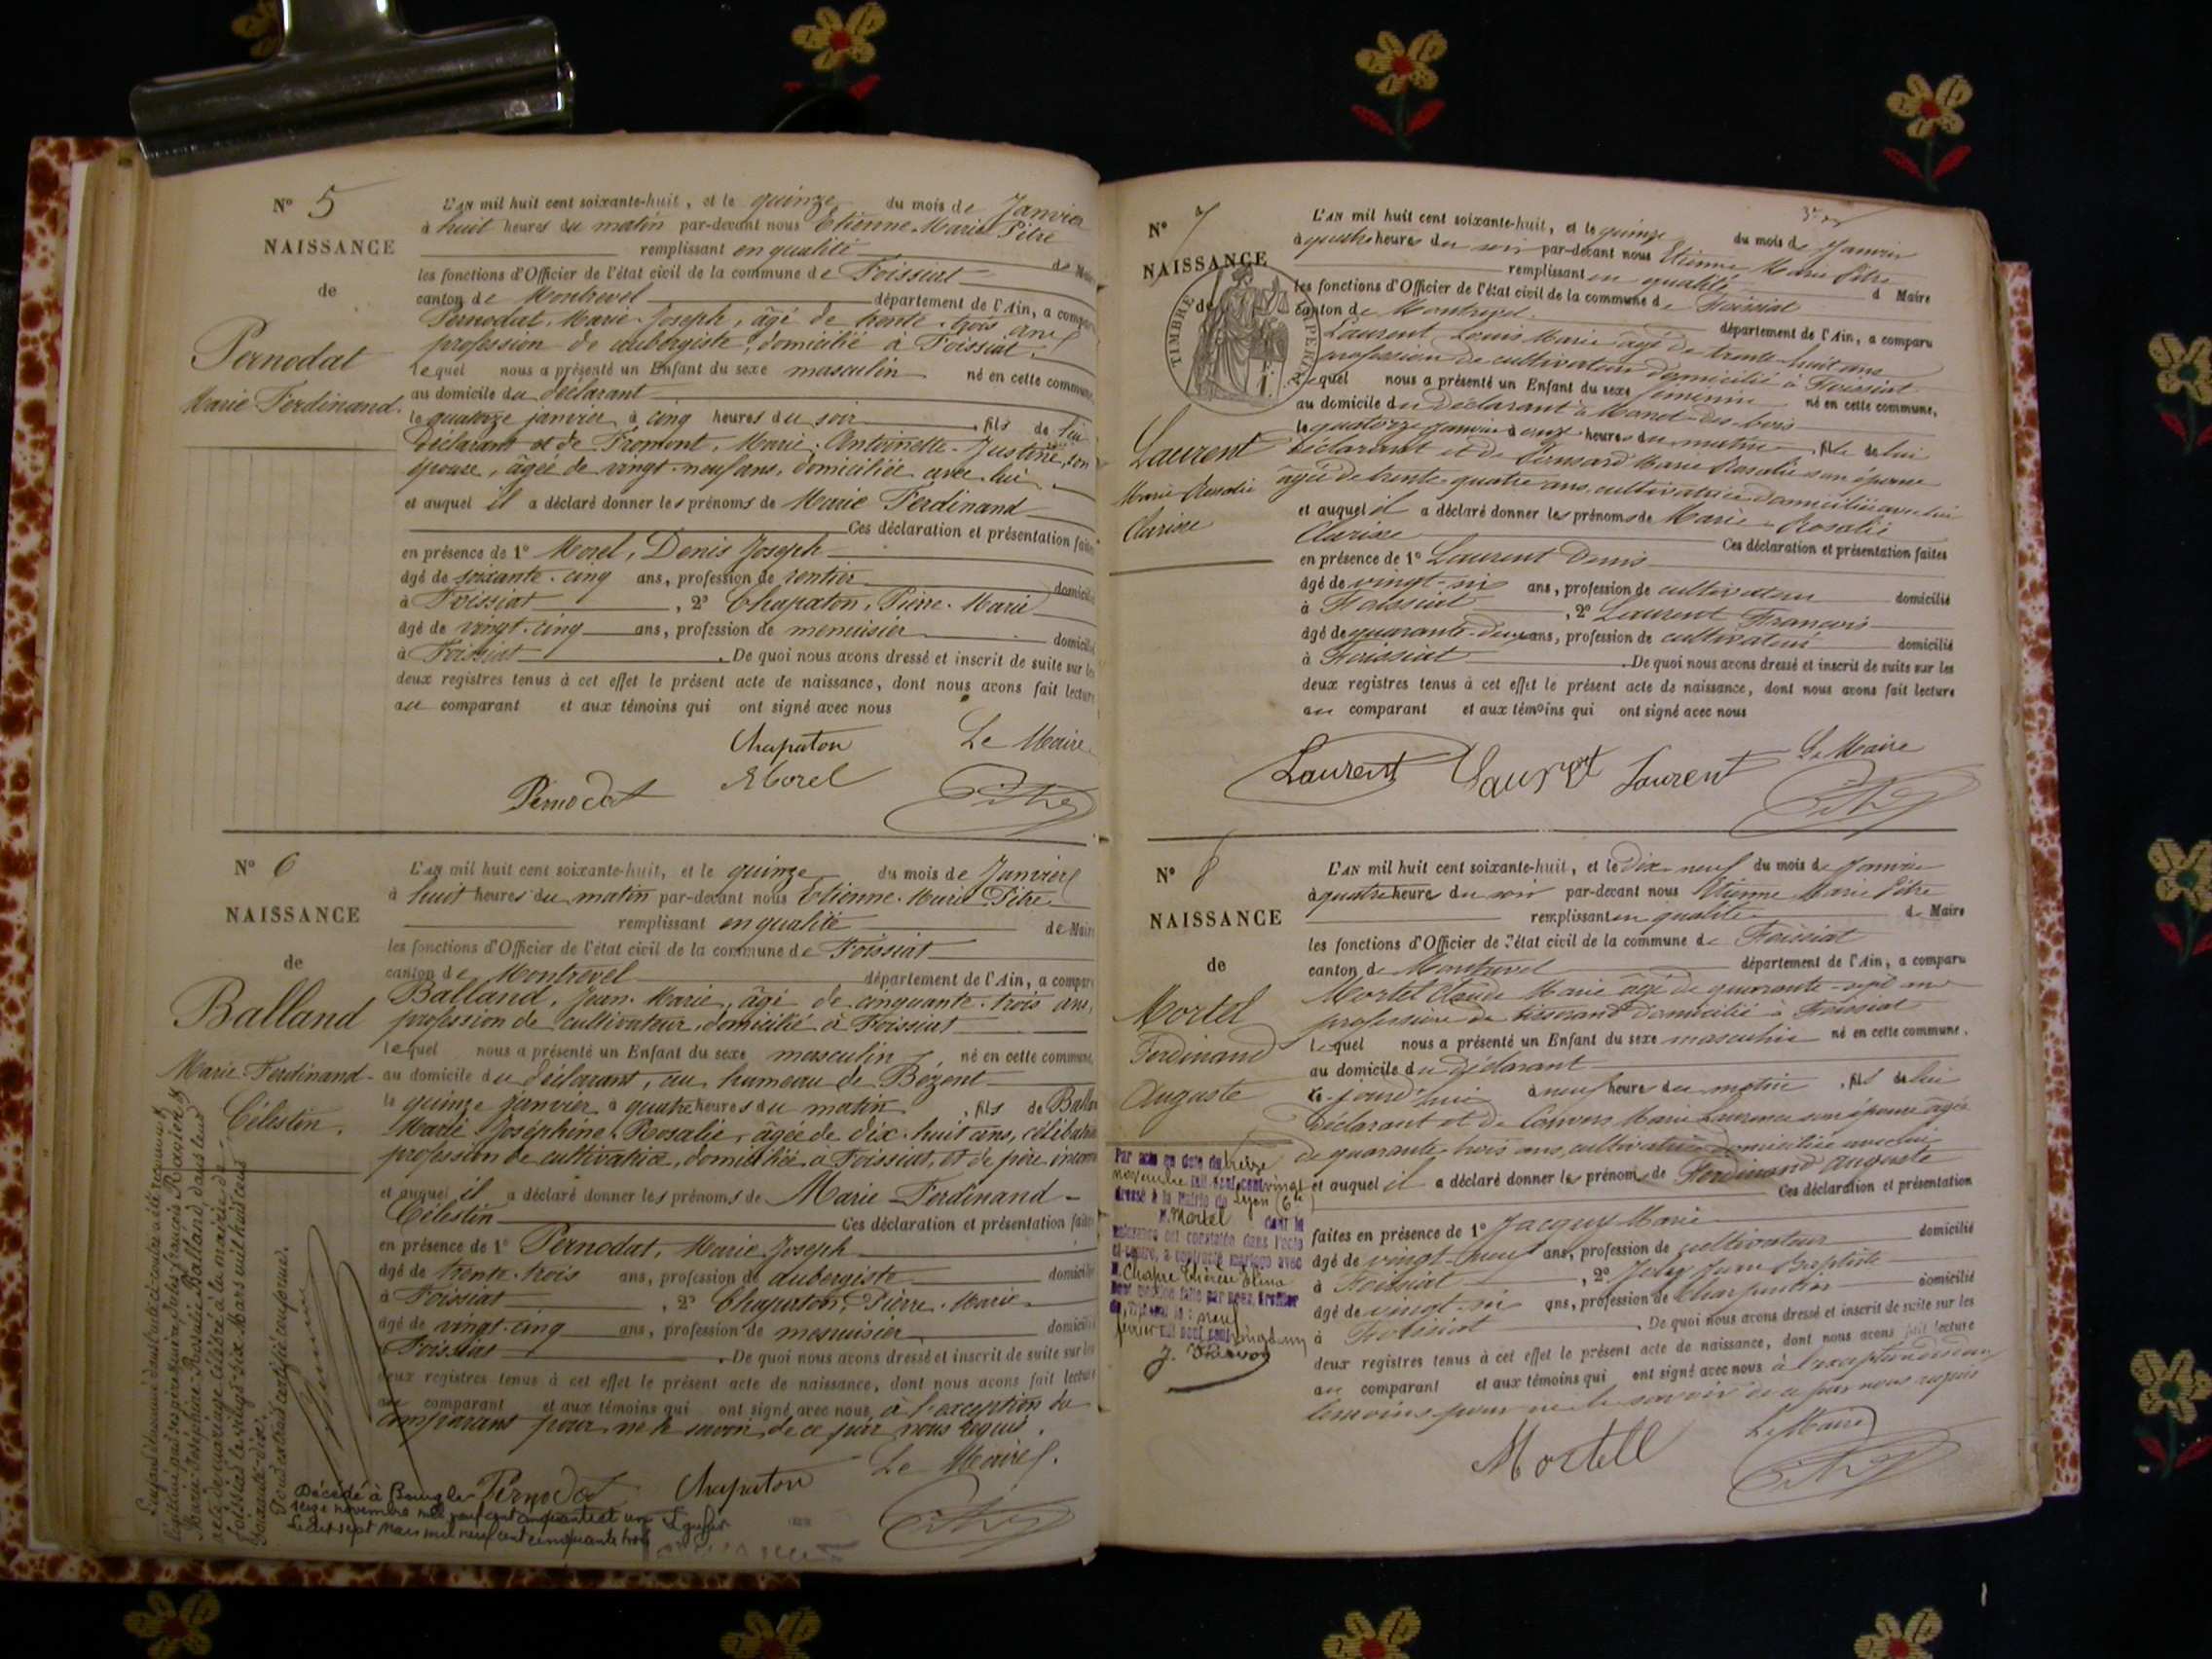 N° 5
NAISSANCE
de
Pernodat
Marie Ferdinand.
L'AN mil huit cent soixante-huit, et le quinze du mois de Janvier
à huit heures du matin par-devant nous Etienne Marie Pitre
remplissant en qualité de Maire
les fonctions d'Officier de l'état civil de la commune de Foissiat
canton de Montrevel département de l'Ain, a comparu
Pernodat, Marie Joseph, âgé de trente-trois ans
profession de aubergiste, domicilié à Foissiat.
lequel nous a présenté un Enfant du sexe masculin né en cette commune,
au domicile du déclarant
le quatorze janvier à cinq heures du soir, fils de lui
déclarant et de Fromont, Marie Antoinette Justine, son
épouse, âgée de vingt-neuf ans, domiciliée avec lui
et auquel il a déclaré donner les prénoms de Marie Ferdinand
Ces déclaration et présentation faites
en présence de 1° Morel, Denis Joseph
âgé de soixante-cinq ans, profession de rentier domicilié
à Foissiat, 2° Chapaton, Pierre Marie
âgé de vingt-cinq ans, profession de menuisier domicilié
à Foissiat. De quoi nous avons dressé et inscrit de suite sur les
deux registres tenus à cet effet le présent acte de naissance, dont nous avons fait lecture
au comparant et aux témoins qui ont signé avec nous
Chapaton Le Maire
Pernodat Morel Pitre
N° 6
NAISSANCE
de
Balland
Marie-Ferdinand-
Célestin.
L'AN mil huit cent soixante-huit, et le quinze du mois de Janvier
à huit heures du matin par-devant nous Etienne Marie Pitre
remplissant en qualité de Maire
les fonctions d'Officier de l'état civil de la commune de Foissiat
canton de Montrevel département de l'Ain, a comparu
Balland, Jean Marie, âgé de cinquante-trois ans,
profession de cultivateur, domicilié à Foissiat
lequel nous a présenté un Enfant du sexe masculin, né en cette commune,
au domicile du déclarant, au hameau de Bézent
le quinze janvier à quatre heures du matin, fils de Balland
Marie Joséphine Rosalie, âgée de dix-huit ans, célibataire
profession de cultivatrice, domiciliée à Foissiat, et de père inconnu
et auquel il a déclaré donner les prénoms de Marie-Ferdinand-
Célestin Ces déclaration et présentation faites
en présence de 1° Pernodat, Marie Joseph
âgé de trente-trois ans, profession de aubergiste domicilié
à Foissiat, 2° Chapaton, Pierre Marie
âgé de vingt-cinq ans, profession de menuisier domicilié
à Foissiat. De quoi nous avons dressé et inscrit de suite sur les
deux registres tenus à cet effet le présent acte de naissance, dont nous avons fait lecture
au comparant et aux témoins qui ont signé avec nous, à l'exception du
comparant pour ne le savoir de ce par nous requis.
Le Maire
Pernodat Chapaton Pitre
L'enfant dénommé dans l'acte ci-contre a été reconnu &
légitimé par ses père & mère Jules François Ravier &
Marie Joséphine Rosalie Balland dans leur
acte de mariage célébré à la mairie de
Foissiat le vingt-six Mars mil huit cent
soixante-dix.
Pour extrait certifié conforme.
Décédé à Bourg le
seize novembre mil neuf cent cinquante et un
Le dix sept Mars mil neuf cent cinquante trois
N° 7
NAISSANCE
de
TIMBRE IMPERIAL
Laurent
Marie Rosalie
Clarisse
L'AN mil huit cent soixante-huit, et le quinze du mois de Janvier
à quatre heures du soir par-devant nous Etienne Marie Pitre
remplissant en qualité de Maire
les fonctions d'Officier de l'état civil de la commune de Foissiat
canton de Montrevel département de l'Ain, a comparu
Laurent Louis Marie âgé de trente-huit ans
profession de cultivateur domicilié à Foissiat
lequel nous a présenté un Enfant du sexe féminin né en cette commune,
au domicile du déclarant
le quatorze janvier à onze heures du matin, fille de lui
déclarant et de Marie Rosalie son épouse
âgée de trente-quatre ans, cultivatrice domiciliée avec lui
et auquel il a déclaré donner les prénoms de Marie Rosalie
Clarisse Ces déclaration et présentation faites
en présence de 1° Laurent Denis
âgé de vingt-six ans, profession de cultivateur domicilié
à Foissiat, 2° Laurent François
âgé de quarante-deux ans, profession de cultivateur domicilié
à Foissiat. De quoi nous avons dressé et inscrit de suite sur les
deux registres tenus à cet effet le présent acte de naissance, dont nous avons fait lecture
au comparant et aux témoins qui ont signé avec nous
Laurent Laurent Laurent Le Maire
Pitre
N° 8
NAISSANCE
de
Mortel
Ferdinand
Auguste
L'AN mil huit cent soixante-huit, et le dix-neuf du mois de Janvier
à quatre heures du soir par-devant nous Etienne Marie Pitre
remplissant en qualité de Maire
les fonctions d'Officier de l'état civil de la commune de Foissiat
canton de Montrevel département de l'Ain, a comparu
Mortel Claude Marie âgé de quarante-sept ans
profession de tisserand domicilié à Foissiat
lequel nous a présenté un Enfant du sexe masculin né en cette commune.
au domicile du déclarant
ce jourd'hui à neuf heures du matin, fils de lui
déclarant et de Marie Laurence son épouse âgée
de quarante-trois ans, cultivatrice domiciliée avec lui
et auquel il a déclaré donner les prénoms de Ferdinand Auguste
Ces déclaration et présentation
faites en présence de 1° Jacquy Marie
âgé de vingt-neuf ans, profession de cultivateur domicilié
à Foissiat, 2° Jean Baptiste
âgé de vingt-six ans, profession de charpentier domicilié
à Foissiat. De quoi nous avons dressé et inscrit de suite sur les
deux registres tenus à cet effet le présent acte de naissance, dont nous avons fait lecture
au comparant et aux témoins qui ont signé avec nous à l'exception des
témoins pour ne le savoir de ce par nous requis
Mortell Le Maire
Pitre
Par acte en date du treize
novembre mil neuf cent vingt
dressé à la mairie de Lyon (6e)
M. Mortel dont la
naissance est constatée dans l'acte
ci-contre, a contracté mariage avec
M. Chapre Thérèse Eléna
dont mention faite par nous, Greffier
du Tribunal le neuf
février mil neuf cent vingt un